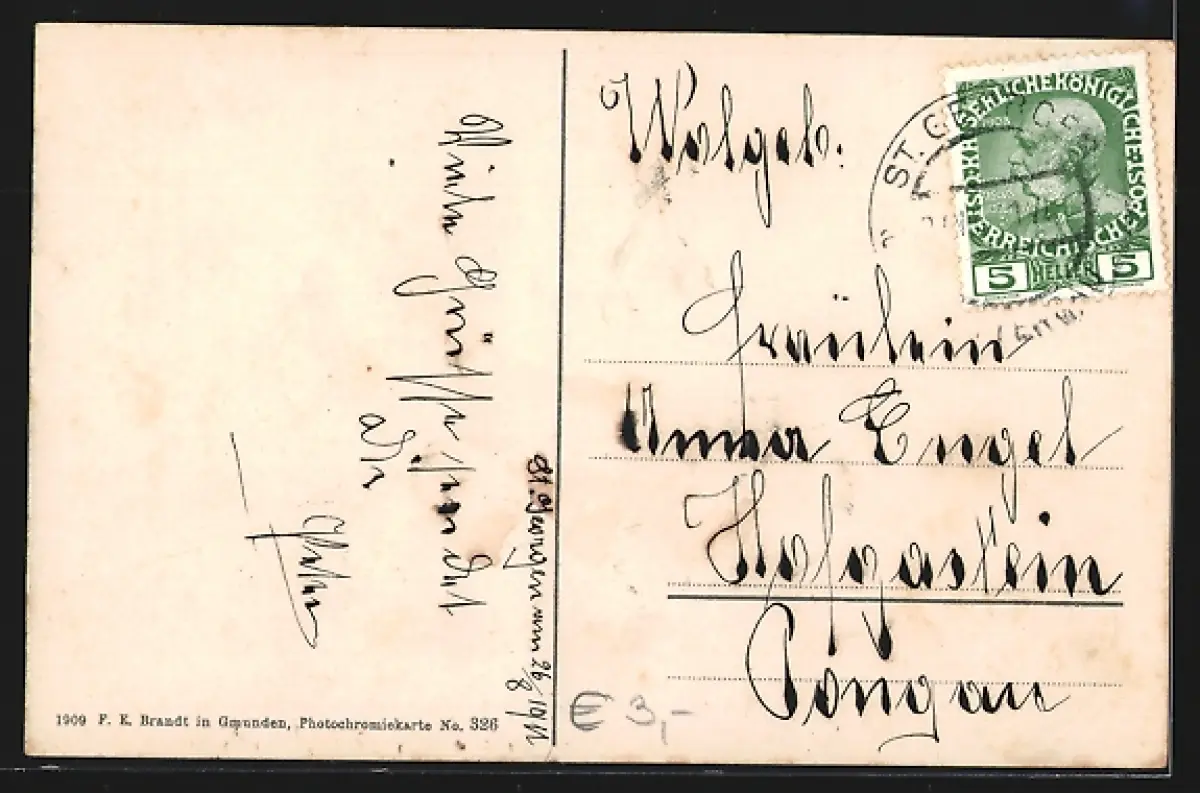 Viele Grüsse sendet
dir
St. Georgen am 26/8 1911
Wolgeb:
Fräulein
Anna Engel
Hofgastein
Pongau
KAISERLICHE KÖNIGLICHE ÖSTERREICHISCHE POST
1908
5 HELLER 5
ST. GEORGEN
€ 3,-
1909 F. E. Brandt in Gmunden, Photochromiekarte No. 326